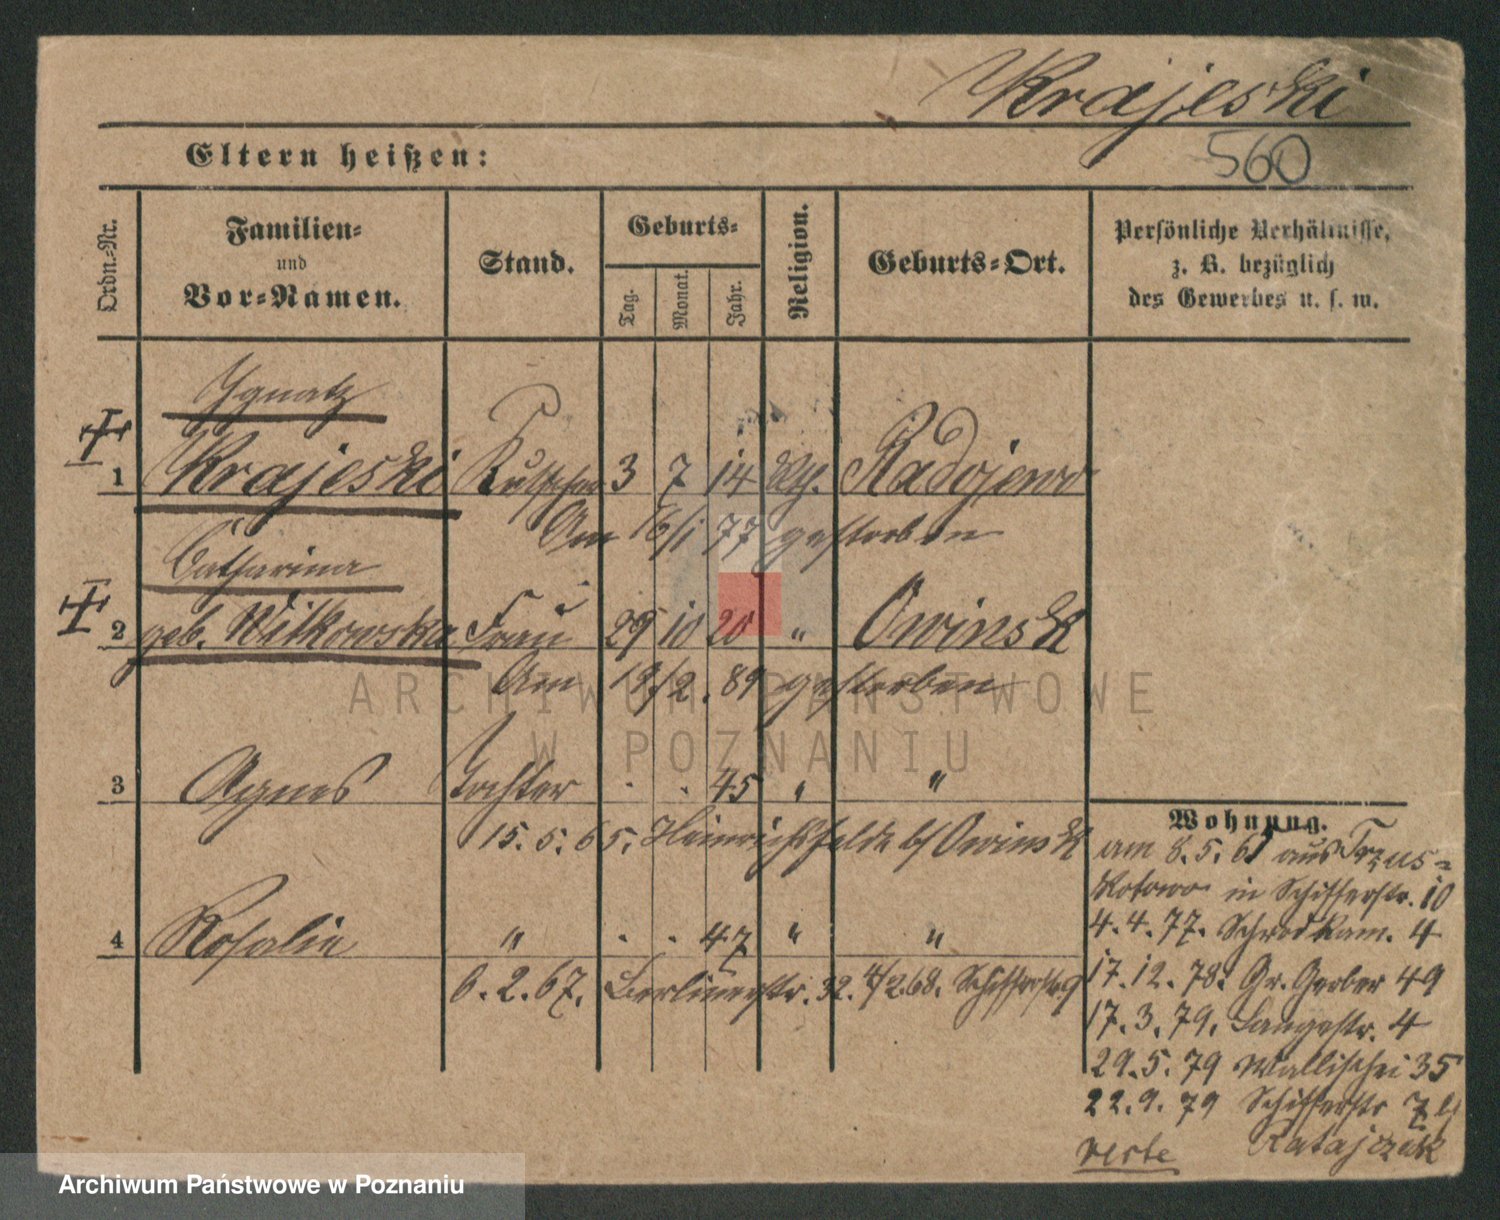 Krajeski
Eltern heißen:
560
Ordn.-Nr.
Familien-
und
Vor-Namen.
Stand.
Geburts-
Tag.
Monat.
Jahr.
Religion.
Geburts-Ort.
Persönliche Verhältnisse,
z. B. bezüglich
des Gewerbes u. s. w.
Ignatz
1 Krajeski Kutscher 3 7 14 Kth. Radojewo
Am 16/1 77 gestorben
Catharina
2 geb. Witkowska Frau 29 10 20 " Owinsk
Am 19/2. 89 gestorben
3 Agnes Tochter . . 45 " "
15. 5. 65. Heinrichsfelde b/ Owinsk
4 Rosalie " . . 47 " "
6. 2. 67. Berlinerstr. 32. 4/2 68. Schifferstr. 9
Wohnung.
am 8. 5. 61 aus Trzus=
kotowo in Schifferstr. 10
4. 4. 77. Schrodkam. 4
17. 12. 78. Gr. Gerber 49
17. 3. 79. Langestr. 4
29. 5. 79 Wallischei 35
22. 9. 79 Schifferstr 7 b/
verte Ratajczak
ARCHIWUM PAŃSTWOWE
W POZNANIU
Archiwum Państwowe w Poznaniu